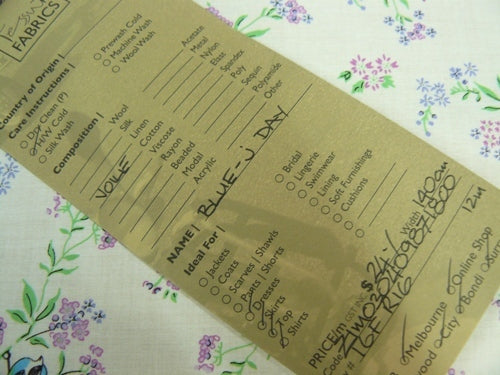 Tessuti
FABRICS
Country of Origin |
Care Instructions |
Dry Clean (P)
H/W Cold
Silk Wash
Prewash Cold
Machine Wash
Wool Wash
Composition |
VOILE
Wool
Silk
Linen
Cotton
Viscose
Rayon
Beaded
Modal
Acrylic
Acetate
Metal
Nylon
Elast
Spandex
Poly
Sequin
Polyamide
Other
NAME | BLUE-J DAY
Ideal For |
Jackets
Coats
Scarves | Shawls
Pants | Shorts
Dresses
Skirts
Top
Shirts
Bridal
Lingerie
Swimwear
Lining
Soft Furnishings
Cushions
PRICE/m $24.-
GST INC
Width 140cm
Code
TGF R16
12m
Melbourne
Online Shop
City
Bondi